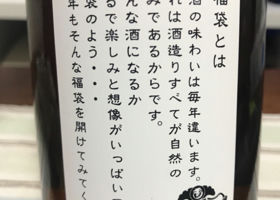 福袋とは
酒の味わいは毎年違います。
れは酒造りすべてが自然の
みであるからです。
んな酒になるか
るで楽しみと想像がいっぱい
袋のよう・・・
年もそんな福袋を開けてみてく